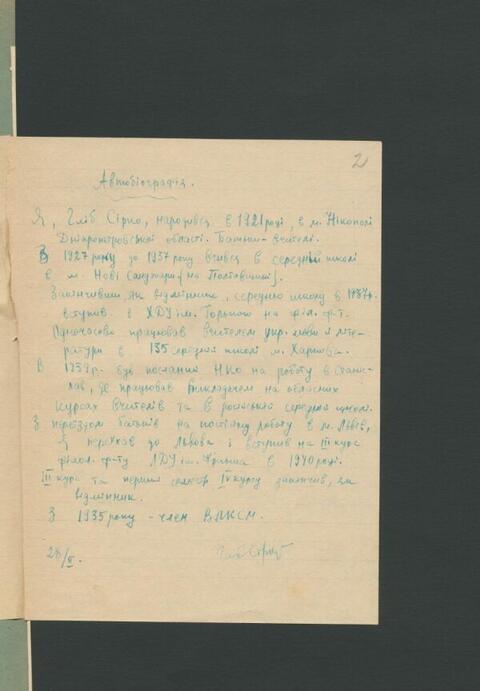 2
Автобіографія.
Я, Гліб Сірко, народився в 1921 році, в м. Нікополі
Дніпропетровської області. Батьки – вчителі.
В 1927 року до 1937 року вчився в середній школі
в м. Нові Санжари (на Полтавщині).
Закінчивши як відмінник, середню школу в 1937 р.
вступив в ХДУ ім. Горького на філ. ф-т.
Одночасно працював вчителем укр. мови й літе-
ратури в 135 середній школі м. Харкова.
В 1939 р. був посланий НКО на роботу в Станіс-
лав, де працював викладачем на обласних
курсах вчителів та в російській середній школі.
З переїздом батьків на постійну роботу в м. Львів,
я переїхав до Львова і вступив на III курс
філол. ф-ту ЛДУ ім. Франка в 1940 році.
III курс та перший семестр IV курсу закінчив, як
відмінник.
З 1935 року – член ВЛКСМ.
28/